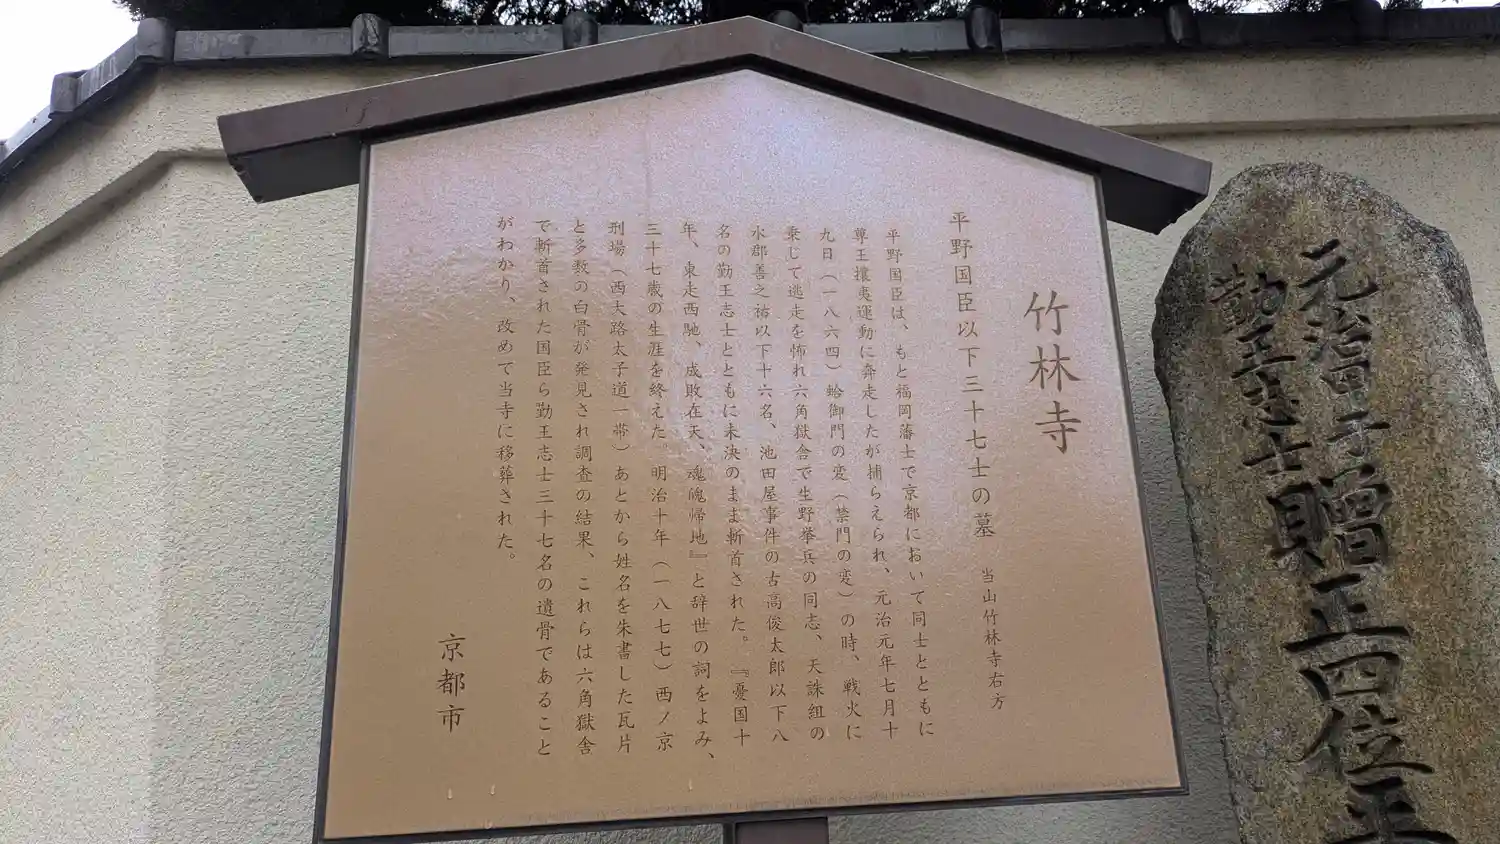 元治甲子贈正四位平
勤王志士
竹林寺
平野国臣以下三十七士の墓 当山竹林寺右方
平野国臣は、もと福岡藩士で京都において同士とともに
尊王攘夷運動に奔走したが捕らえられ、元治元年七月十
九日（一八六四）蛤御門の変（禁門の変）の時、戦火に
乗じて逃走を怖れ六角獄舎で生野挙兵の同志、天誅組の
水郡善之祐以下十六名、池田屋事件の古高俊太郎以下八
名の勤王志士とともに未決のまま斬首された。『憂国十
年、東走西馳、成敗在天、魂魄帰地』と辞世の詞をよみ、
三十七歳の生涯を終えた。明治十年（一八七七）西ノ京
刑場（西大路太子道一帯）あとから姓名を朱書した瓦片
と多数の白骨が発見され調査の結果、これらは六角獄舎
で斬首された国臣ら勤王志士三十七名の遺骨であること
がわかり、改めて当寺に移葬された。
京都市